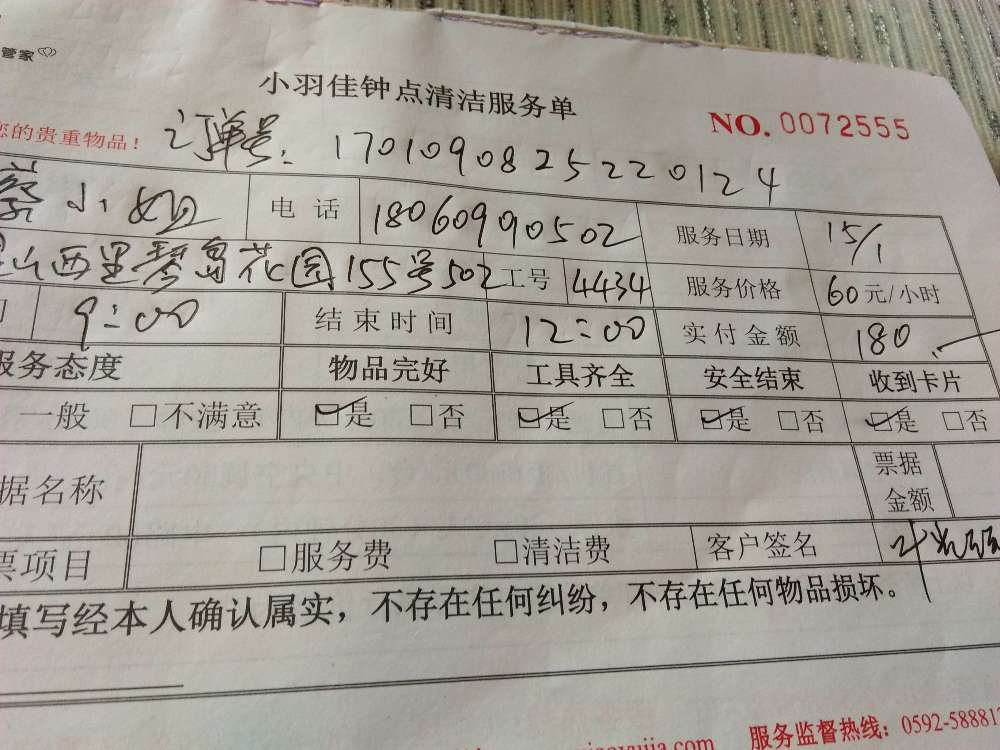 管家
小羽佳钟点清洁服务单
NO. 0072555
您的贵重物品！
订单号: 170109082522 0124
蔡小姐 电话 18060990502 服务日期 15/1
山西里琴岛花园155号502 工号 4434 服务价格 60元/小时
9:00 结束时间 12:00 实付金额 180
服务态度 物品完好 工具齐全 安全结束 收到卡片
一般 □不满意 ☑是 □否 ☑是 □否 ☑是 □否 ☑是 □否
据名称 票据金额
票项目 □服务费 □清洁费 客户签名
填写经本人确认属实，不存在任何纠纷，不存在任何物品损坏。
服务监督热线: 0592-58881